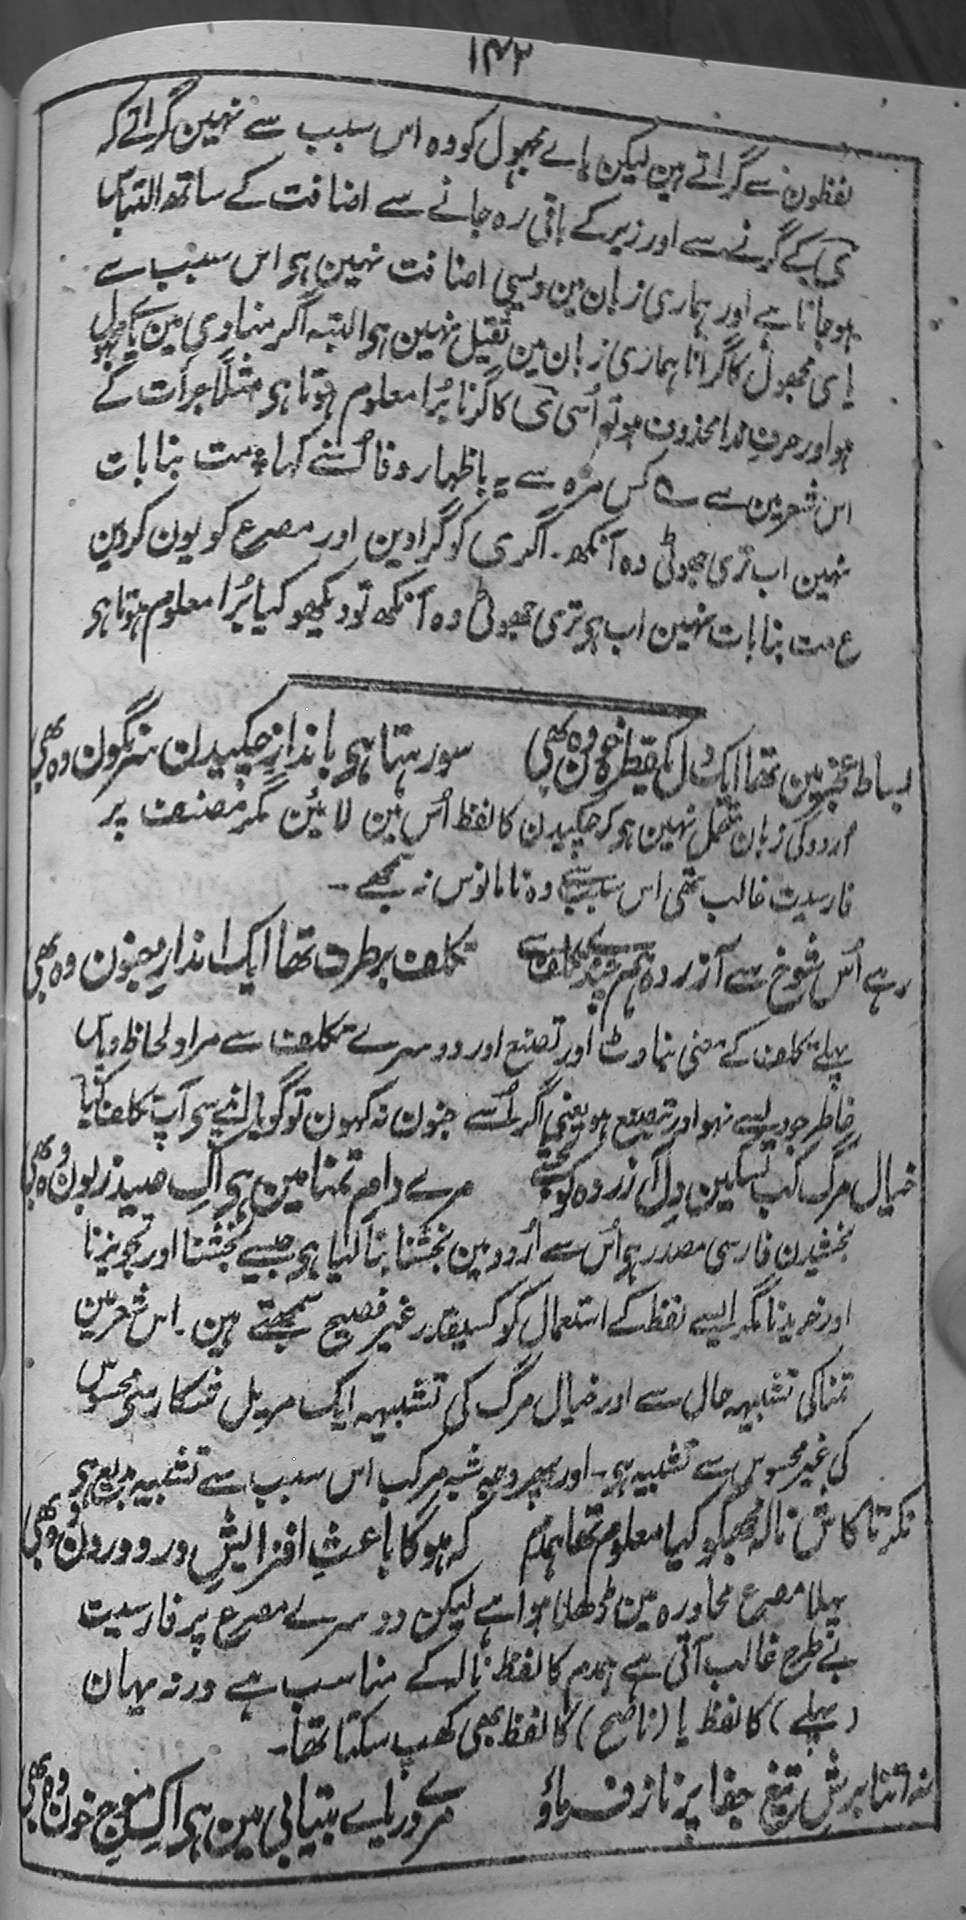 ۱۴۳
لفظون سے گراتے ہین لیکن ہاے مجہول کو وہ اس سبب سے نہین گراتے کہ
ی کے گرنے سے اور زیر کے باقی رہ جانے سے اضافت کے ساتھ التباس
ہو جاتا ہے اور ہماری زبان مین ویسی اضافت نہین ہو اس سبب سے
یای مجہول کا گرانا ہماری زبان مین ثقیل نہین ہو البتہ اگر منادی مین یاے مجہول
ہو اور حرفِ ندا محذوف ہو تو اُسی ی کا گرنا بُرا معلوم ہوتا ہو مثلاً جرأت کے
اس شعر مین سے ؎ کس مزہ سے یہ باظہارِ وفا اُسنے کہا ؞ مت بنا بات
نہین اب تری جھوٹی وہ آنکھ ۔ اگر ی کو گرا دین اور مصرع کو یون کر دین
ع مت بنا بات نہین اب ہو تری جھوٹی وہ آنکھ تو دیکھو کیا بُرا معلوم ہوتا ہو
بساطِ عجز مین تھا ایک دل یک قطرہ خون وہ بھی سو رہتا ہو باندازِ چکیدن سرنگون وہ بھی
اردو کی زبان متحمل نہین ہو کہ چکیدن کا لفظ اُس مین لائین مگر مصنف پر
فارسیت غالب تھی اس سبب سے وہ نامانوس نہ سمجھے ۔
رہے اُس شوخ سے آزردہ ہم چندے تکلف سے تکلف برطرف تھا ایک اندازِ جنون وہ بھی
پہلے تکلف کے معنی بناوٹ اور تصنع اور دوسرے تکلف سے مراد لحاظ و پاس
خاطر جو دل سے نہو اور تصنع ہو یعنی اگر اُسے جنون نہ کہون تو گویا اپنے ہی آپ تکلف کیا
خیالِ مرگ کب تسکین دلِ آزردہ کو بخشے مرے دامِ تمنا مین ہو اک صیدِ زبون وہ بھی
بخشیدن فارسی مصدر ہو اُس سے اُردو مین بخشنا بنا لیا ہو جیسے بخشنا اور تجویزنا
اور خریدنا مگر ایسے لفظ کے استعمال کو کسیقدر غیر فصیح سمجھتے ہین ۔ اس شعر مین
تمنا کی تشبیہ جال سے اور خیالِ مرگ کی تشبیہ ایک مریل شکار سے محسوس
کی غیر محسوس سے تشبیہ ہو ۔ اور پھر وجہِ شبہ مرکب اس سبب سے تشبیہ بدیع ہو
نکرتا کاش نالہ مجھکو کیا معلوم تھا ہمدم کہ ہوگا باعثِ افزائشِ درد درون وہ بھی
پہلا مصرع محاورہ مین ڈھلا ہوا ہے لیکن دوسرے مصرع پر فارسیت
بے طرح غالب آئی ہے ہمدم کا لفظ نالہ کے مناسب ہے ورنہ یہان
(پہلے) کا لفظ یا (ناصح) کا لفظ بھی کھپ سکتا تھا ۔
نہ اتنا برشِ تیغِ جفا پر ناز فرماؤ مرے دریاے بیتابی مین ہو اک موجِ خون وہ بھی